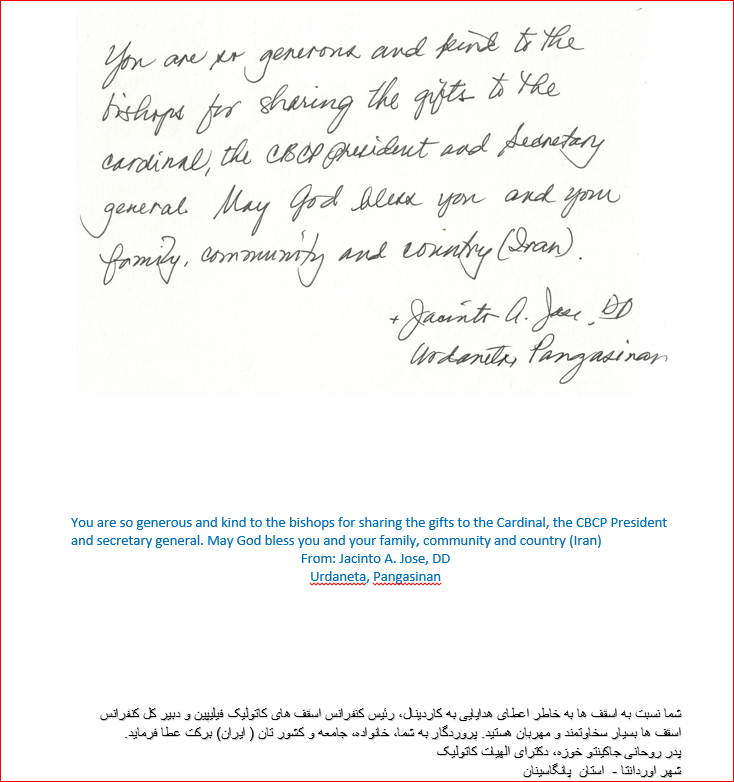 You are so generous and kind to the
bishops for sharing the gifts to the
cardinal, the CBCP president and secretary
general. May God bless you and your
family, community and country (Iran).
+ Jacinto A. Jose, DD
Urdaneta, Pangasinan
You are so generous and kind to the bishops for sharing the gifts to the Cardinal, the CBCP President
and secretary general. May God bless you and your family, community and country (Iran)
From: Jacinto A. Jose, DD
Urdaneta, Pangasinan
شما نسبت به اسقف ها به خاطر اعطای هدایایی به کاردینال، رئیس کنفرانس اسقف های کاتولیک فیلیپین و دبیر کل کنفرانس
اسقف ها بسیار سخاوتمند و مهربان هستید. پروردگار به شما، خانواده، جامعه و کشور تان ( ایران) برکت عطا فرماید.
پدر روحانی جاکینتو خوزه، دکترای الهیات کاتولیک
شهر اوردانتا - استان پانگاسینان